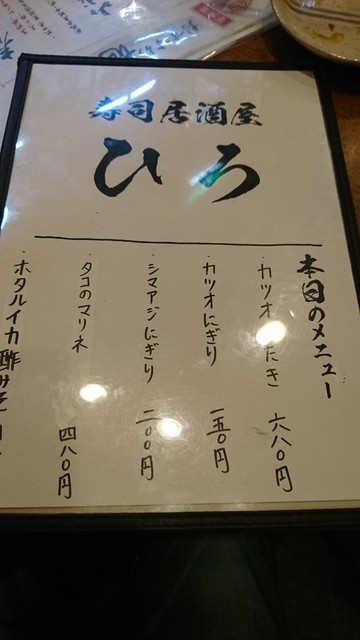 寿司居酒屋
ひろ
本日のメニュー
・カツオ たき 六八〇円
・カツオにぎり 一五〇円
・シマアジにぎり 二〇〇円
・タコのマリネ 四八〇円
・ホタルイカ酢みそ